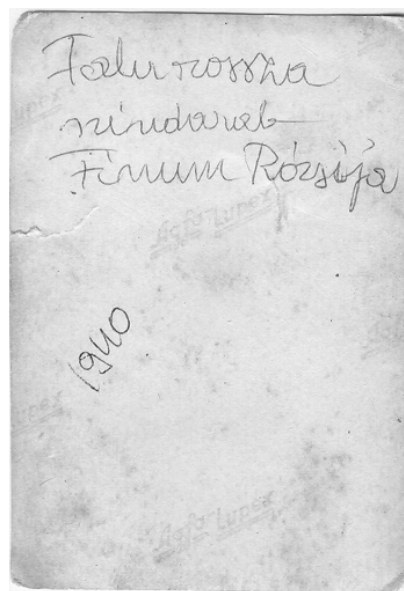 Falu rossza
szindarab
Finum Rózsija
Agfa Lupex
1940
Agfa
Lupex
Agfa Lupex